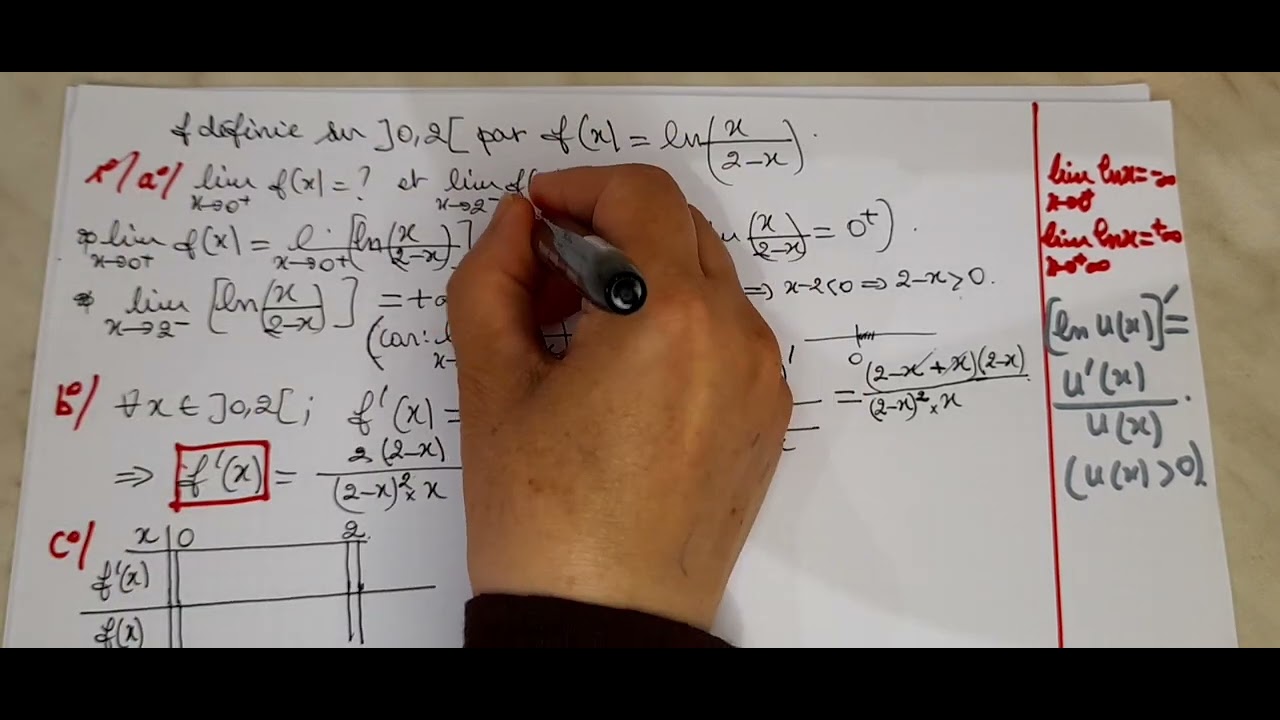 f définie sur ]0,2[ par f(x) = ln(x/(2-x)).
1°/ a°/ lim x→0⁺ f(x) = ? et lim x→2⁻ f(
* lim x→0⁺ f(x) = lim x→0⁺ [ln(x/(2-x))] (x/(2-x) = 0⁺).
⇒ x-2<0 ⇒ 2-x>0.
* lim x→2⁻ [ln(x/(2-x))] = +∞
(car:
0
b°/ ∀x∈]0,2[; f'(x) = = (2-x+x)(2-x)/((2-x)²×x)
⇒ f'(x) = 2(2-x)/((2-x)²×x)
c°/ x 0 2
f'(x)
f(x)
lim x→0⁺ lnx = -∞
lim x→+∞ lnx = +∞
[ln u(x)]' =
u'(x)/u(x).
(u(x)>0)